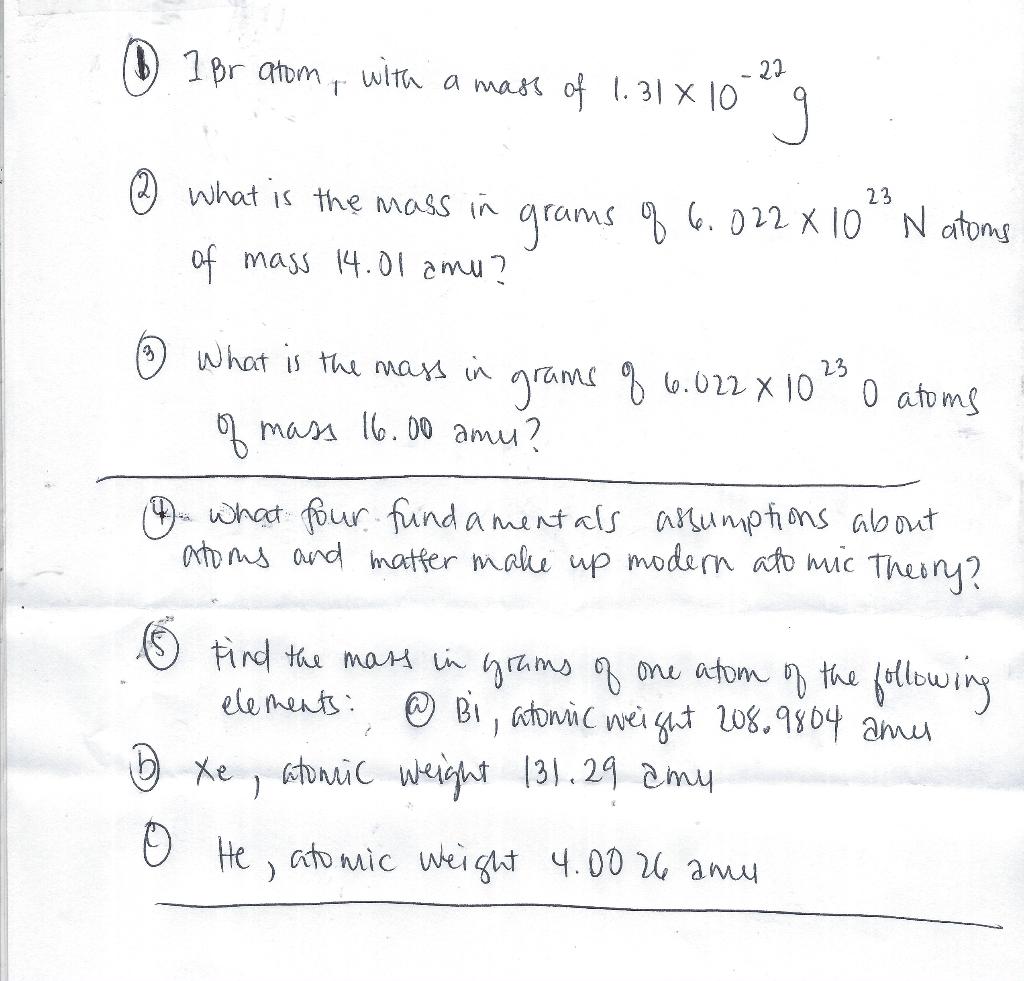 ⓑ 1 Br atom, with a mass of 1.31 × 10⁻²² g
② what is the mass in grams of 6.022 × 10²³ N atoms
of mass 14.01 amu?
③ What is the mass in grams of 6.022 × 10²³ O atoms
of mass 16.00 amu?
④ what four fundamentals assumptions about
atoms and matter make up modern atomic Theory?
⑤ Find the mass in grams of one atom of the following
elements: ⓐ Bi, atomic weight 208.9804 amu
ⓑ Xe, atomic weight 131.29 amu
ⓒ He, atomic weight 4.0026 amu